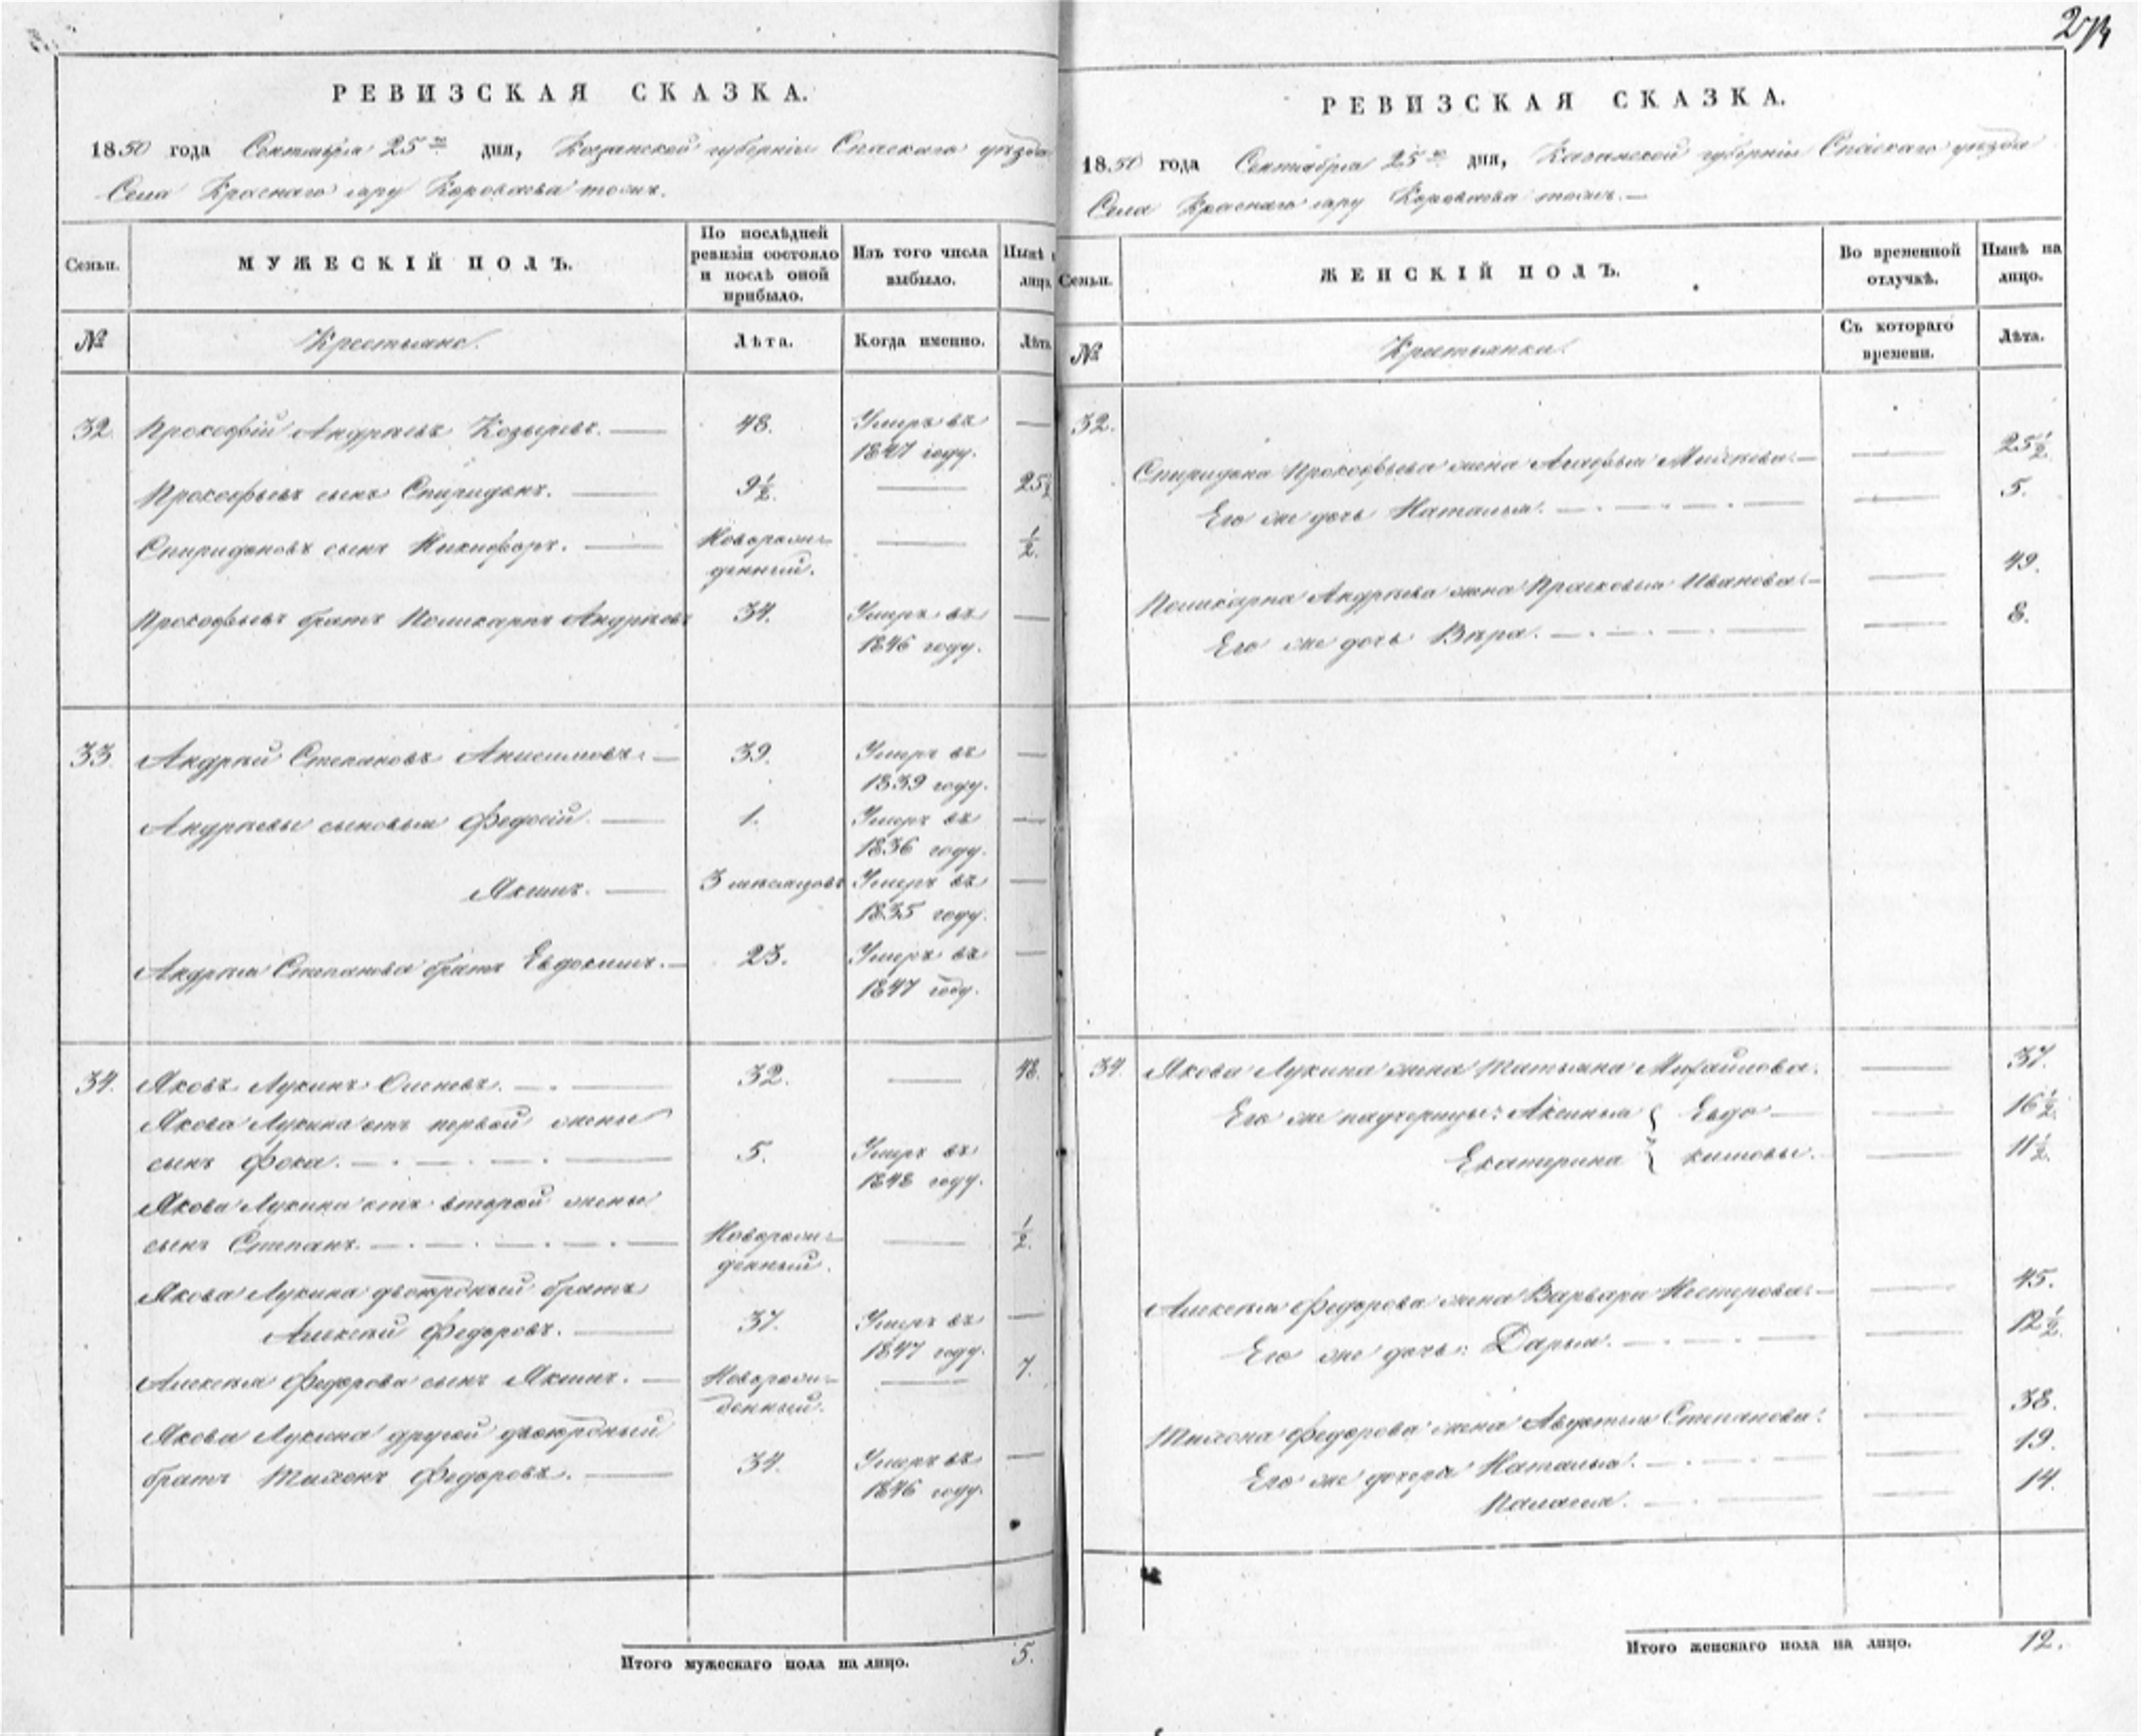 РЕВИЗСКАЯ СКАЗКА.
1850 года Сентября 25го дня, Казанской губернiи Спаскаго уѣзда
Села Краснаго яру Короваева тожъ.
Семьи.
МУЖЕСКIЙ ПОЛЪ.
По послѣдней ревизiи состояло и послѣ оной прибыло.
Изъ того числа выбыло.
Нынѣ лицо
№
Крестьяне.
Лѣта.
Когда именно.
Лѣта
32. Прокофiй Андреевъ Козыревъ. — 48. Умеръ въ —
1847 году.
Прокофьевъ сынъ Спиридонъ. — 9½. — 25½
Спиридоновъ сынъ Никифоръ. — Новорож- — ½.
денный.
Прокофьевъ братъ Поликарпъ Андреевъ 34. Умеръ въ —
1846 году.
33. Андрей Степановъ Анисимовъ. — 39. Умеръ въ —
1839 году.
Андреевы сыновья Федосiй. — 1. Умеръ въ —
1836 году.
Якимъ. — 3 мѣсяцовъ Умеръ въ —
1835 году.
Андрея Степанова братъ Евдокимъ. — 23. Умеръ въ —
1847 году.
34. Яковъ Лукинъ — 32. — 48.
Якова Лукина отъ первой жены
сынъ Фока. — 5. Умеръ въ
1848 году.
Якова Лукина отъ второй жены
сынъ Степанъ. — Новорож- — ½.
денный.
Якова Лукина двоюродный братъ
Алексей Федоровъ. — 37. Умеръ въ —
1847 году.
Алексея Федорова сынъ Якимъ. — Новорож- — 7.
денный.
Якова Лукина другой двоюродный
братъ Тихонъ Федоровъ. — 34. Умеръ въ —
1846 году.
Итого мужескаго пола на лицо. 5.
РЕВИЗСКАЯ СКАЗКА.
1850 года Сентября 25го дня, Казанской губернiи Спаскаго уѣзда
Села Краснаго яру Короваева тожъ. —
Семьи.
ЖЕНСКIЙ ПОЛЪ.
Во временной отлучкѣ.
Нынѣ на лицо.
№
Крестьянки.
Съ котораго времени.
Лѣта.
32.
Спиридона Прокофьева жена Агафья — — 25½
Его же дочь Наталья. — — 5.
Поликарпа Андреева жена Прасковья Иванова. — — 49.
Его же дочь Вѣра. — — 8.
34. Якова Лукина жена Татьяна Михайлова. — 37.
Его же падчерицы: Аксинья } Евдо- — 16½.
Екатерина } кимовы. — 11½.
Алексея Федорова жена Варвара Нестерова. — — 45.
Его же дочь: Дарья. — — 12½.
Тихона Федорова жена Авдотья Степанова. — 38.
Его же дочери Наталья. — — 19.
Палагея. — — 14.
Итого женскаго пола на лицо. 12.